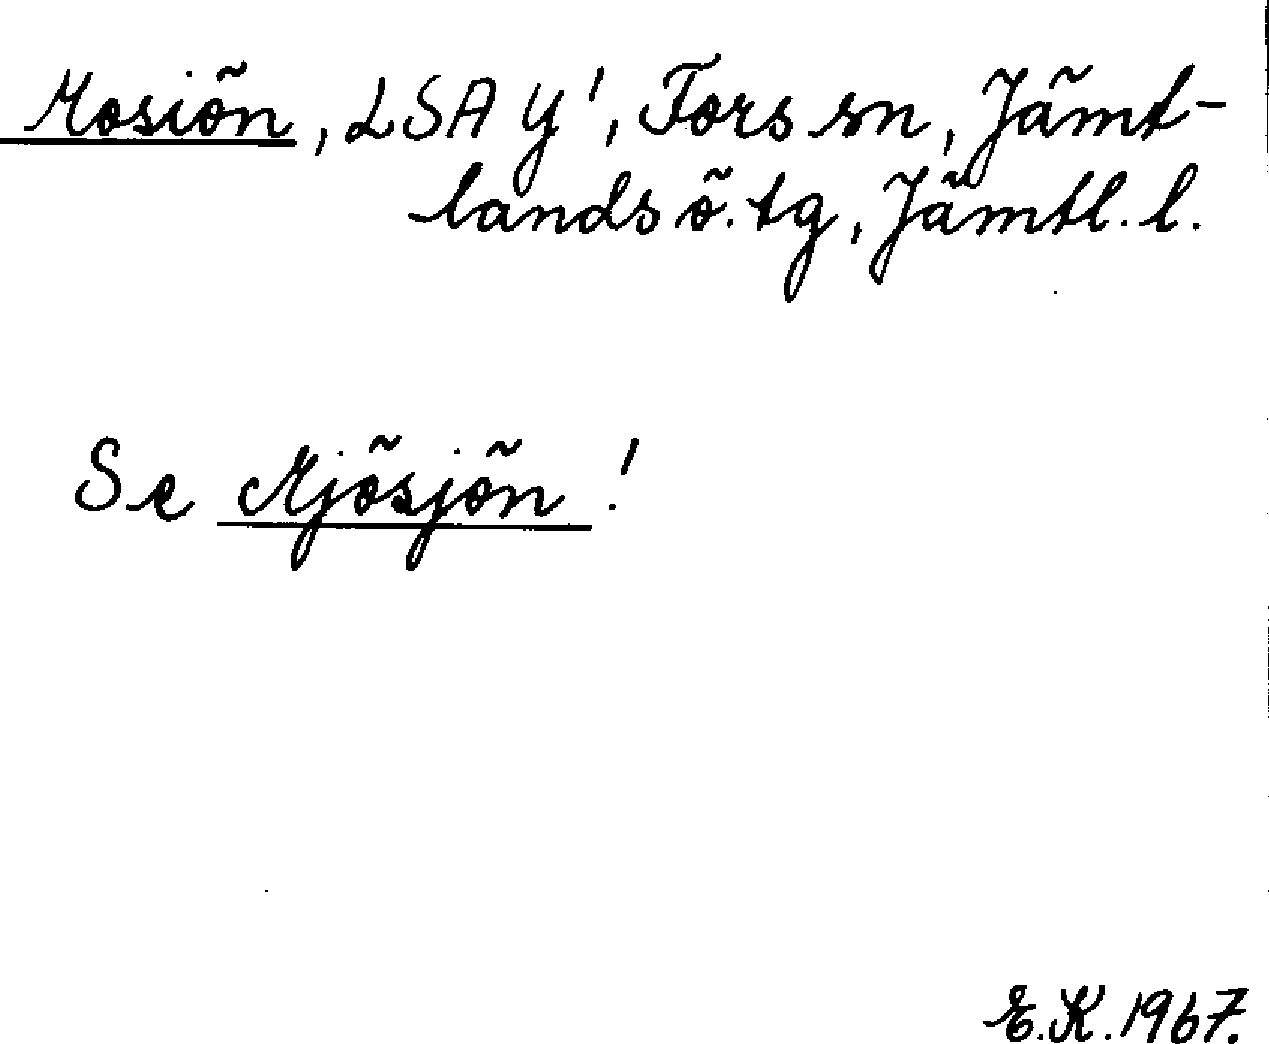 Mosiön, LSA Y¹, Fors sn, Jämt-
lands ö. tg, Jämtl. l.
Se Mjösjön!
E.K. 1967.